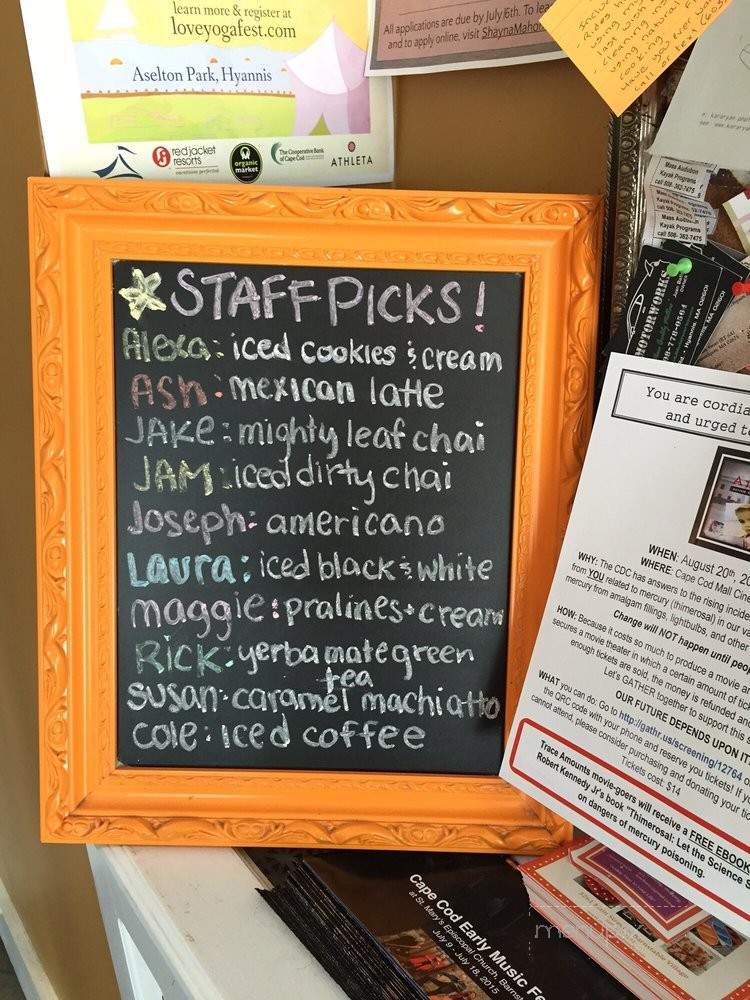 learn more & register at
loveyogafest.com
Aselton Park, Hyannis
redjacket
resorts
organic
market
The Cooperative Bank
of Cape Cod
ATHLETA
All applications are due by July 16th. To
and to apply online, visit ShaynaMaho
using natural
cooking
call or text
Mass Audubon
Kayak Programs
call 508-362-7475
Mass Audubon
Kayak Programs
call 508-362-7475
MOTORWORKS
STAFF PICKS!
Alexa: iced cookies & cream
Ash: mexican latte
JAKe: mighty leaf chai
JAM: iced dirty chai
Joseph: americano
Laura: iced black & white
maggie: pralines + cream
Rick: yerba mate green
tea
susan: caramel machiatto
cole: iced coffee
You are cordia
and urged t
WHEN: August 20th, 2
WHERE: Cape Cod Mall Cine
WHY: The CDC has answers to the rising incide
from YOU related to mercury (thimerosal) in our
mercury from amalgam fillings, lightbulbs, and other
Change will NOT happen until peop
HOW: Because it costs so much to produce a movie a
secures a movie theater in which a certain amount of tic
enough tickets are sold, the money is refunded a
Let's GATHER together to support this s
OUR FUTURE DEPENDS UPON IT
WHAT you can do: Go to http://gathr.us/screening/12764
the QRC code with your phone and reserve you tickets! If y
cannot attend, please consider purchasing and donating your tic
Tickets cost: $14
Trace Amounts movie-goers will receive a FREE EBOOK
Robert Kennedy Jr's book "Thimerosal: Let the Science S
on dangers of mercury poisoning.
Cape Cod Early Music Fe
at St. Mary's Episcopal Church, Barnst
July 9 - July 18, 2015